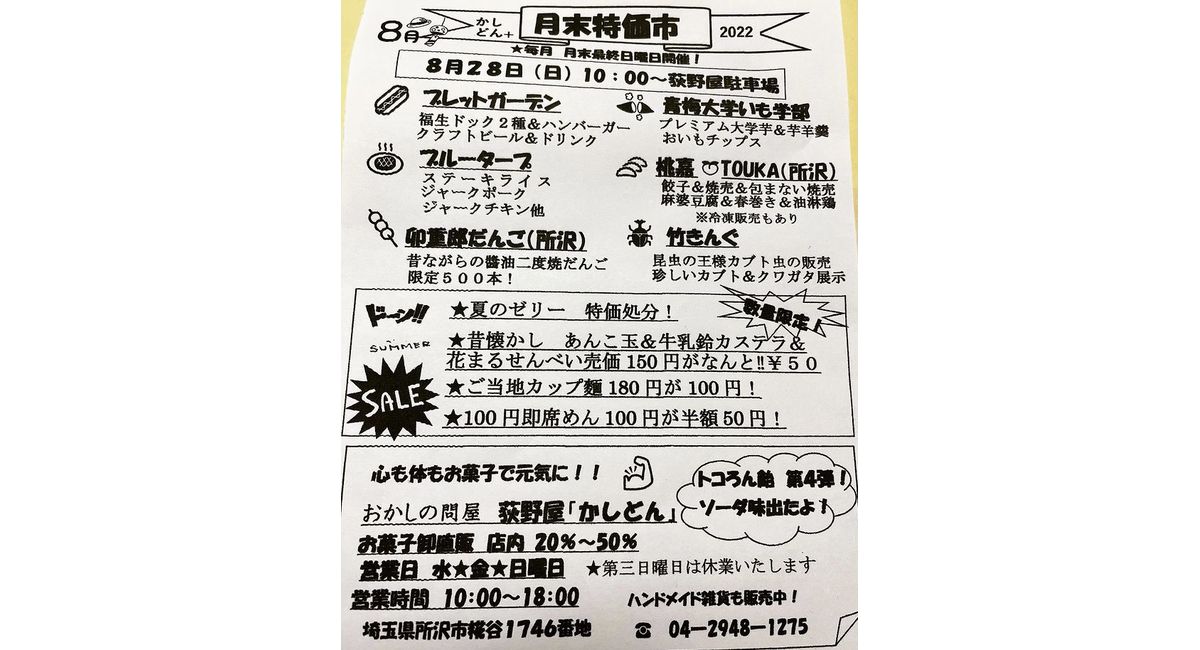 8月 かしどん+ 月末特価市 2022
★毎月 月末最終日曜日開催！
8月28日（日）10：00～荻野屋駐車場
ブレットガーデン
福生ドック２種＆ハンバーガー
クラフトビール＆ドリンク
青梅大学いも学部
プレミアム大学芋＆芋羊羹
おいもチップス
ブルータープ
ステーキライス
ジャークポーク
ジャークチキン他
桃嘉 TOUKA(所沢)
餃子＆焼売＆包まない焼売
麻婆豆腐＆春巻き＆油淋鶏
※冷凍販売もあり
卯重郎だんご(所沢)
昔ながらの醤油二度焼だんご
限定５００本！
竹きんぐ
昆虫の王様カブト虫の販売
珍しいカブト＆クワガタ展示
ドーン!!
★夏のゼリー 特価処分！
数量限定！
SUMMER
SALE
★昔懐かし あんこ玉＆牛乳鈴カステラ＆
花まるせんべい売価150円がなんと!!￥５０
★ご当地カップ麺180円が100円！
★100円即席めん100円が半額50円！
心も体もお菓子で元気に！！
トコろん飴 第4弾！
ソーダ味出たよ！
おかしの問屋 荻野屋「かしどん」
お菓子卸直販 店内 20%～50%
営業日 水★金★日曜日 ★第三日曜日は休業いたします
営業時間 10:00～18:00 ハンドメイド雑貨も販売中！
埼玉県所沢市糀谷1746番地 ☎ 04－2948－1275